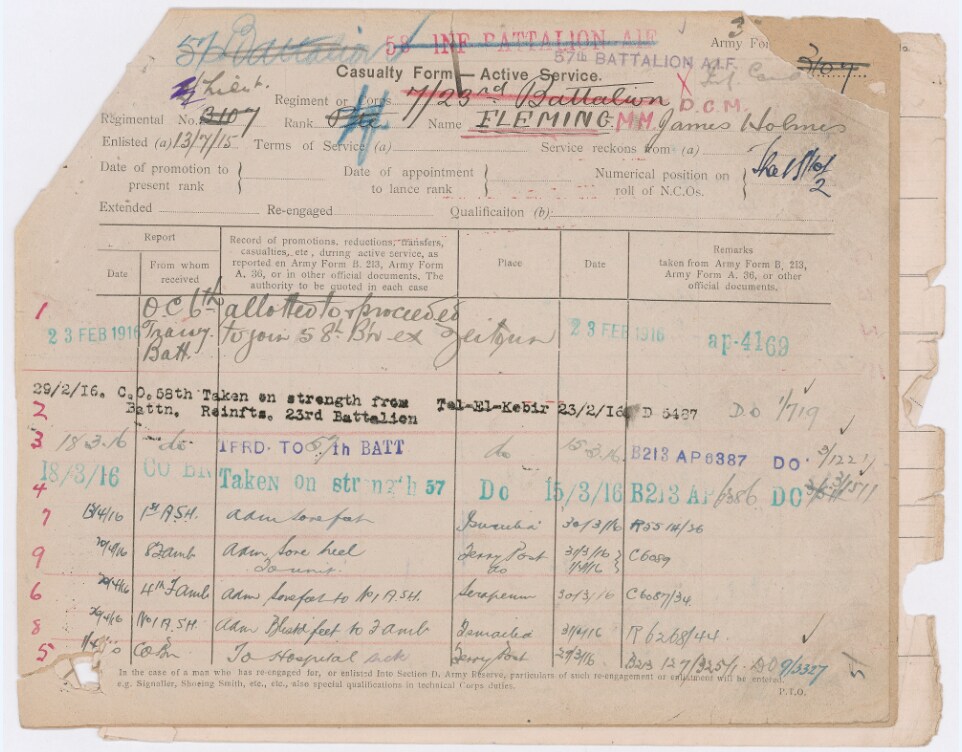 57 Battalion 58 INF BATTALION AIF 3 Army Fo
57th BATTALION A.I.F. 3107
Casualty Form — Active Service. X
2/Lieut. Regiment or Corps 7/23rd Battalion D.C.M.
Regimental No. 3107 Rank Name FLEMING. M.M. James Holmes
Enlisted (a) 13/7/15 Terms of Service (a) Service reckons from (a)
Date of promotion to present rank } Date of appointment to lance rank } Numerical position on roll of N.C.Os. }
Extended Re-engaged Qualification (b)
Report Record of promotions, reductions, transfers, casualties, etc., during active service, as reported on Army Form B. 213, Army Form A. 36, or in other official documents. The authority to be quoted in each case Place Date Remarks taken from Army Form B. 213, Army Form A. 36, or other official documents.
Date From whom received
1 23 FEB 1916 O.C 6th Traing Batt. allotted to & proceeded to join 58th B'n ex Zeitoun 23 FEB 1916 ap-4169
29/2/16. C.O. 58th Battn. Taken on strength from Reinfts. 23rd Battalion Tel-El-Kebir 23/2/16 D 5487 DO 1/719
2
3 18.3.16 do TFRD. TO 57th BATT do 15.3.16. B213 AP6387 DO
18/3/16 CO BN Taken on strength 57 Do 15/3/16 B213 AP 6386 DO
4
7 13/4/16 1st A.S.H. adm sore feet 30/3/16 R5514/26
9 8 Famb Adm Sore heel Ferry Post 31/3/16 C6089
To unit. do
6 4th Famb adm sore feet to No 1 A.S.H. Serapeum 30/3/16 C6087/34
8 No 1 A.S.H. adm Blistd feet to Famb Ismailia R6268/44.
5 CO Bn To Hospital sick Ferry Post 27/3/16. B213 DO 9/3327
In the case of a man who has re-engaged for, or enlisted into Section D, Army Reserve, particulars of such re-engagement or enlistment will be entered.
e.g. Signaller, Shoeing Smith, etc., etc., also special qualifications in technical Corps duties. P.T.O.